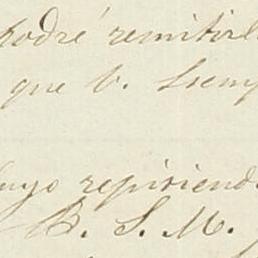 podré remitirl
que V. siemp
uyo repitiend
B. S. M.